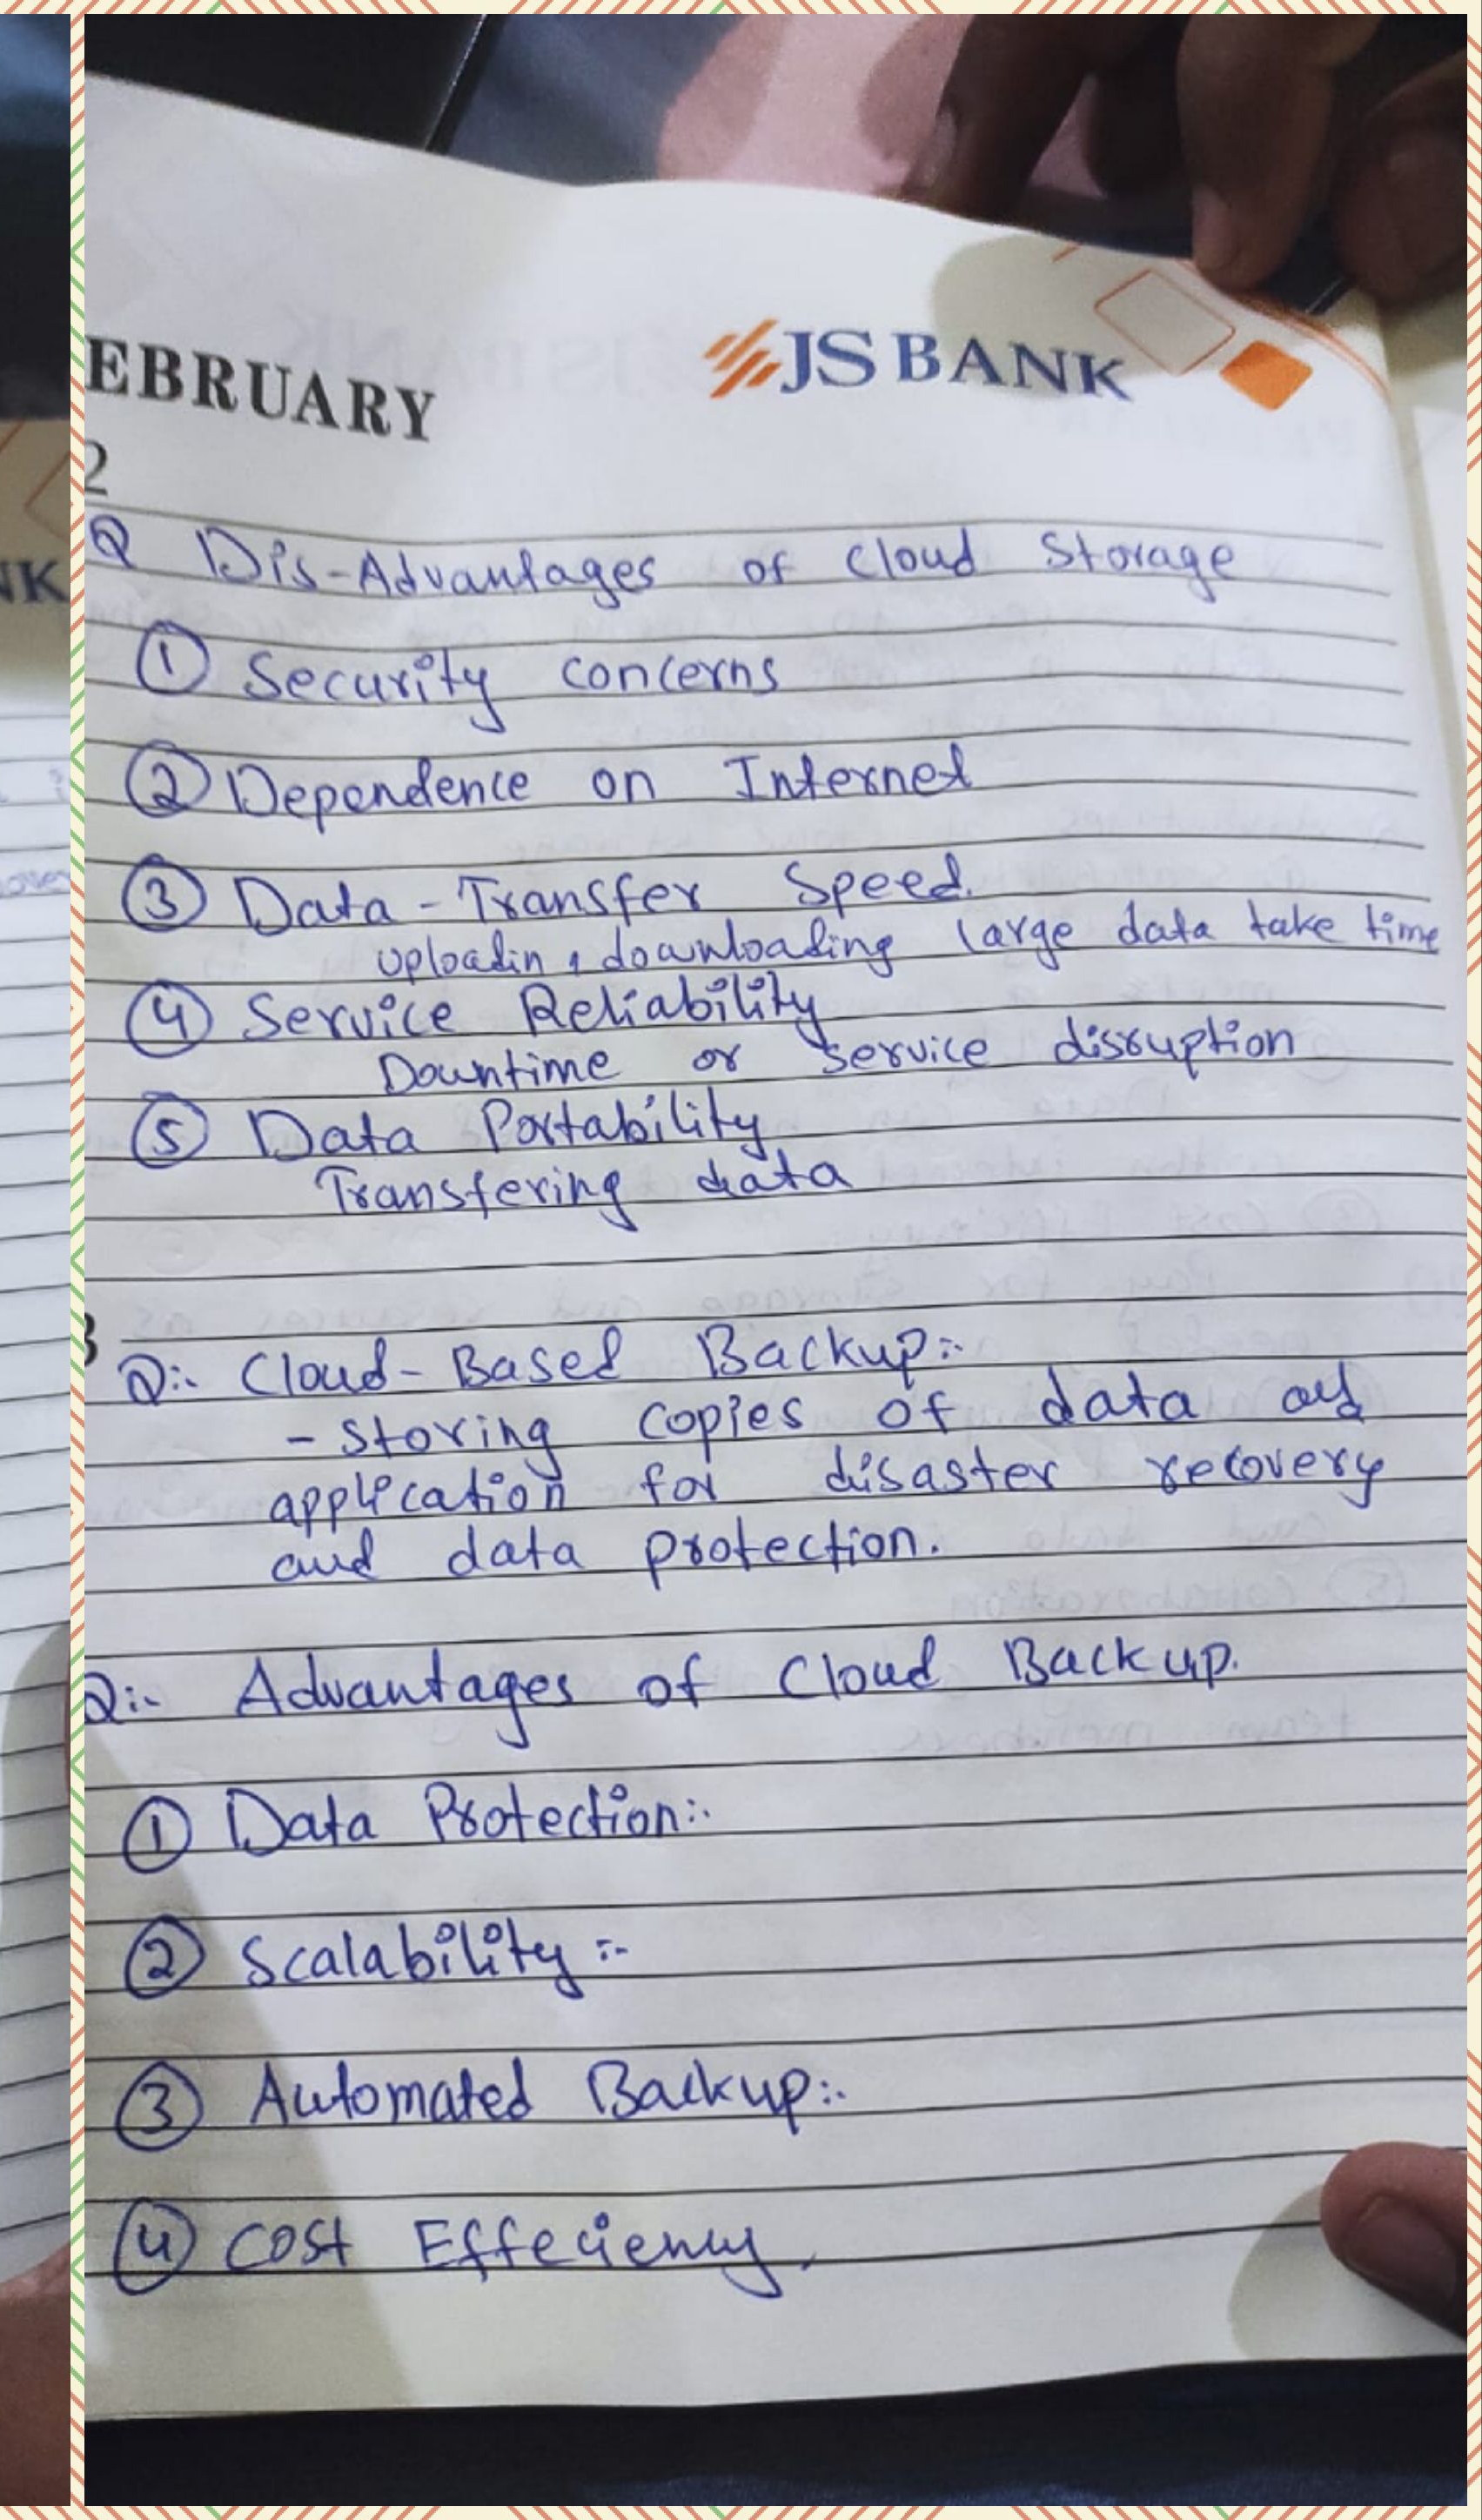 EBRUARY
JS BANK
2
NK
Q Dis-Advantages of Cloud Storage
① Security concerns
② Dependence on Internet
③ Data - Transfer Speed.
Uploadin , downloading large data take time
④ Service Reliability
Downtime or service disruption
⑤ Data Portability
Transfering data
3
Q:- Cloud-Based Backup:-
- Storing copies of data and
application for disaster recovery
and data protection.
Q:- Advantages of Cloud Backup.
① Data Protection:-
② Scalability :-
③ Automated Backup:-
④ Cost Effeciency.